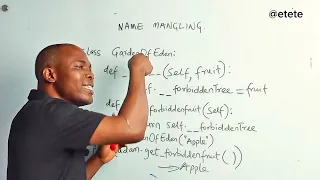 @etete
NAME MANGLING.
class GardenOfEden:
def (self, fruit):
.__forbiddenTree = fruit
forbiddenfruit(self):
self.__forbiddenTree
OfEden("Apple")
.get_forbiddenfruit( )
→ Apple